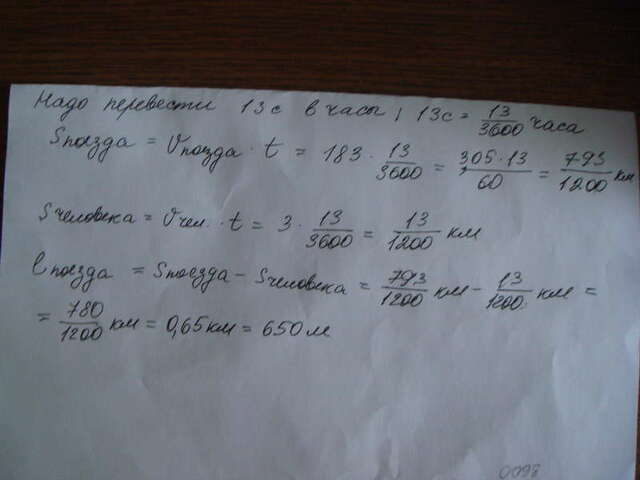 Надо перевести 13 с в часы, 13с = 13/3600 часа
Sпоезда = Vпоезда · t = 183 · 13/3600 = 305·13/60 = 793/1200 км
Sчеловека = Vчел. · t = 3 · 13/3600 = 13/1200 км
lпоезда = Sпоезда - Sчеловека = 793/1200 км - 13/1200 км =
= 780/1200 км = 0,65 км = 650 м
0098